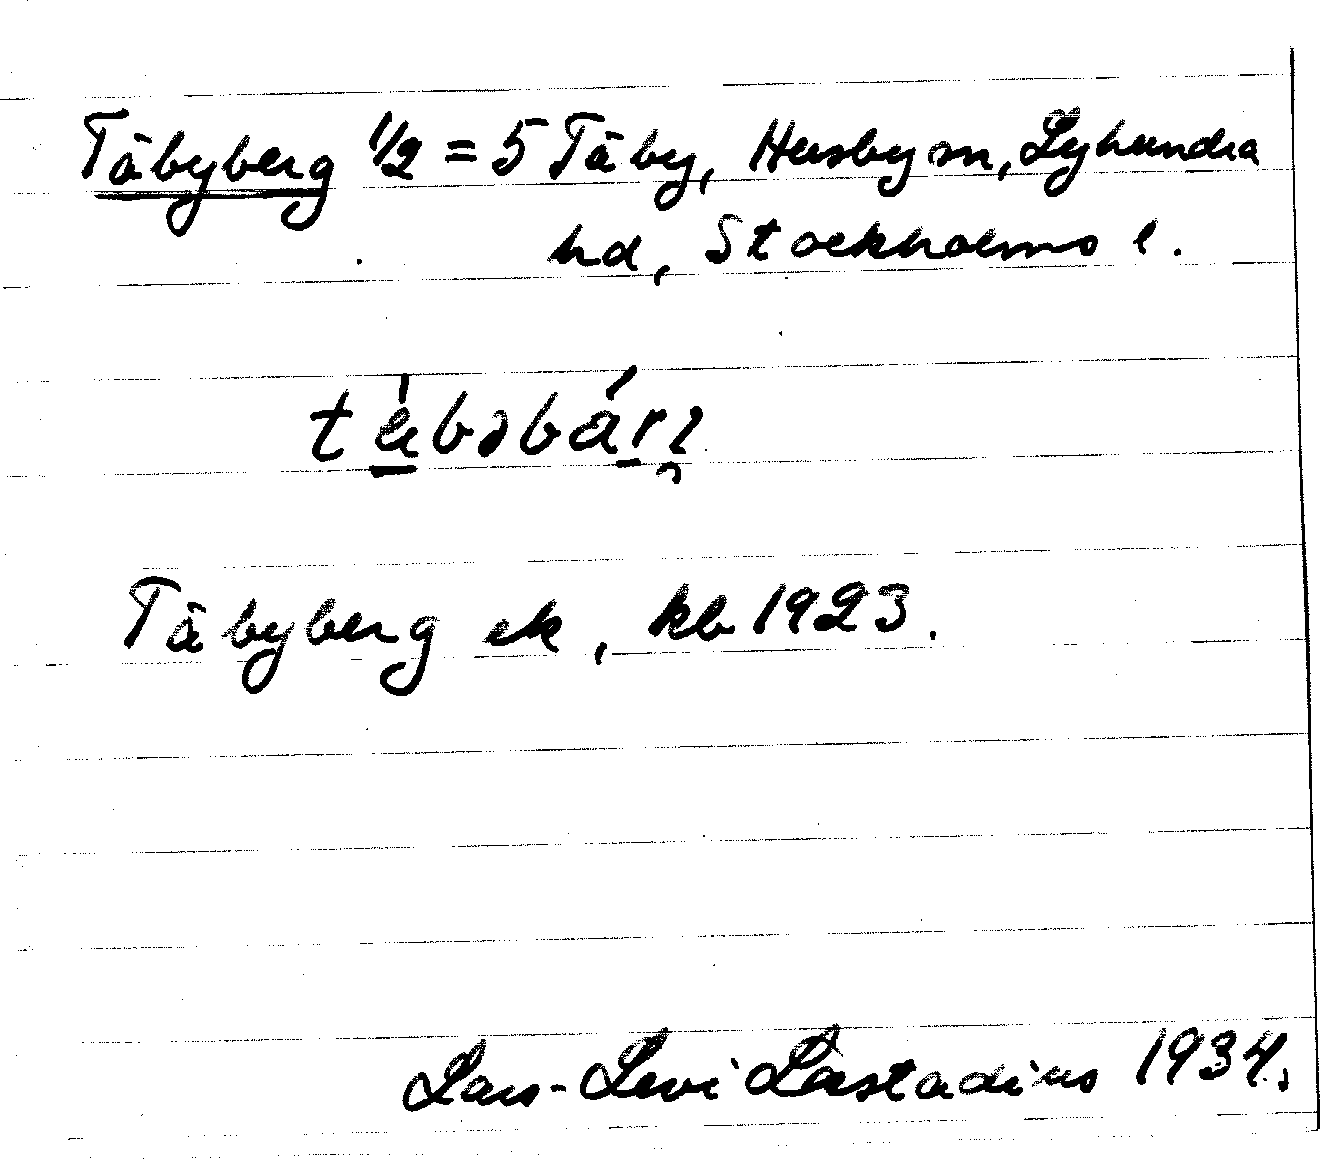 Täbyberg 1/2 = 5 Täby, Husby sn, Lyhundra
hd, Stockholms l.
Täbyberg ek, kb 1923.
Lars-Levi Læstadius 1934.